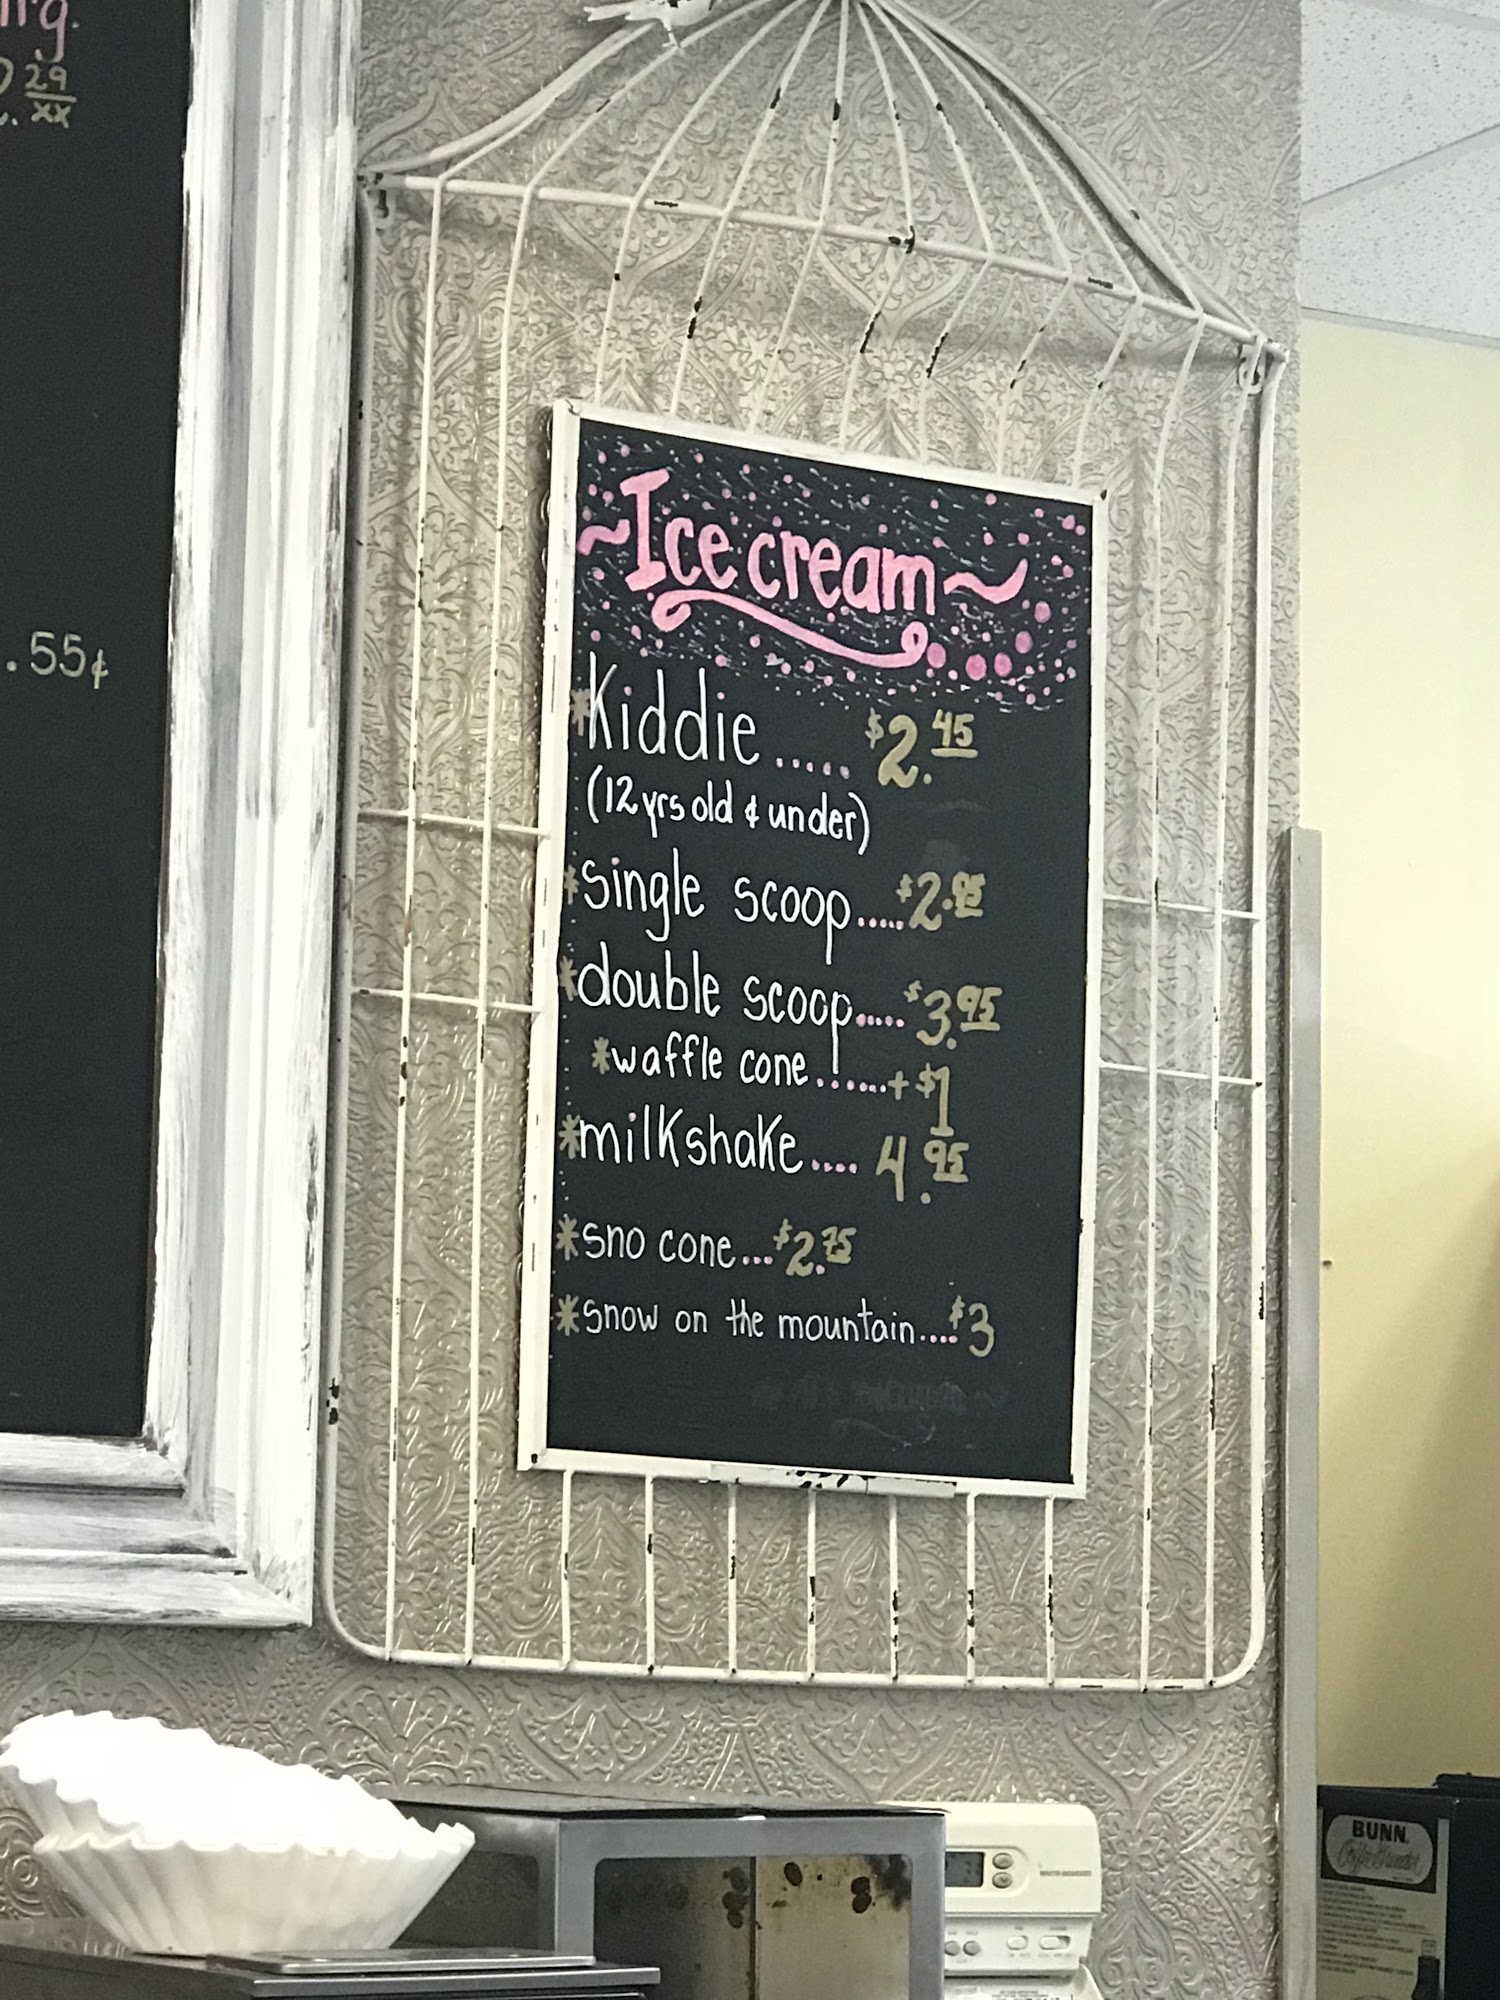 29
xx
.55¢
~Ice cream~
*Kiddie..... $2.45
(12 yrs old & under)
*single scoop.....$2.95
*double scoop.....$3.95
*waffle cone.......+ $1
*milkshake.... 4.95
*sno cone...$2.75
*snow on the mountain....$3
BUNN
Coffee Grinder